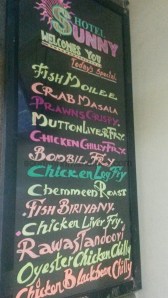 HOTEL
SUNNY
WELCOMES YOU
Today's Special
FISH MOILEE
CRAB MASALA
PRAWNS CRISPY
MUTTON LIVER FRY
CHICKEN CHILLY FRY
BOMBIL FRY
Chicken Leg Fry
Chemmeen Roast
FISH BIRIYANY
Chicken Liver Fry
Rawas Tandoori
Oyester Chicken Chilly
Chicken Blackbean Chilly